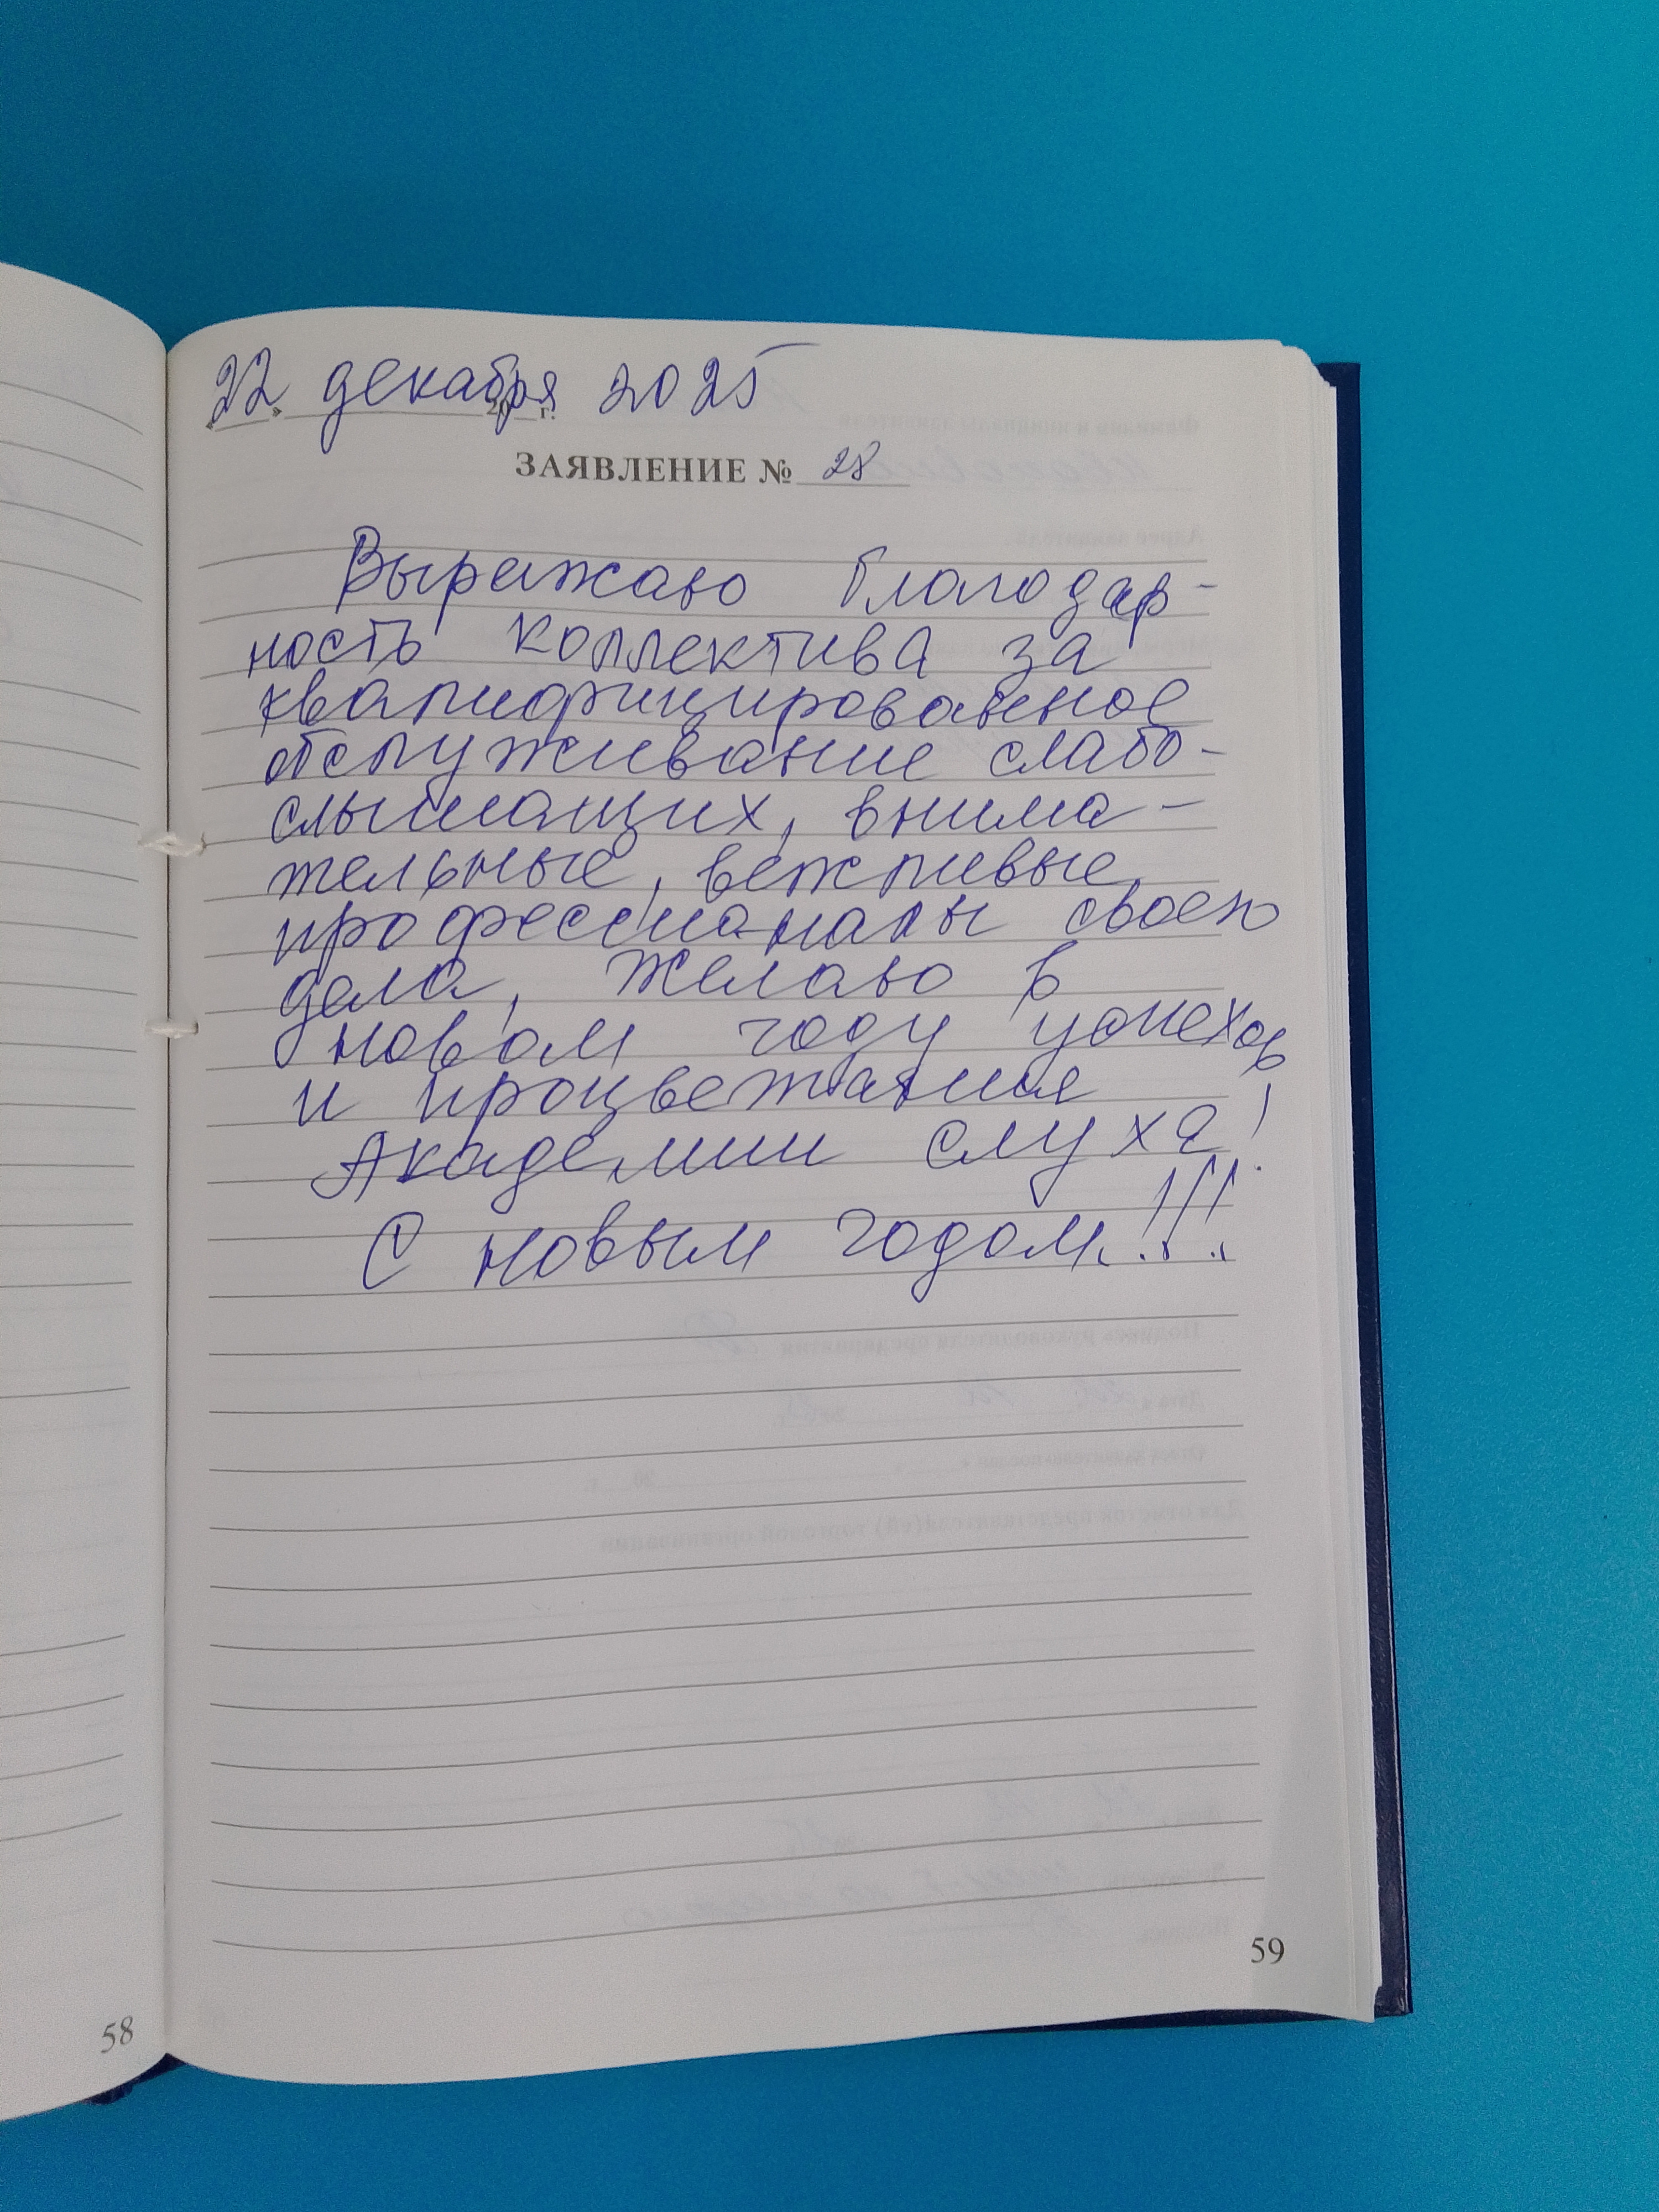 22 декабря 2025
«   » 20   г.
ЗАЯВЛЕНИЕ № 28
Выражаю благодар-
ность коллектива за
квалифицированное
обслуживание слабо-
слышащих, внима-
тельные, вежливые,
профессионалы своего
дела, желаю в
новом году успехов
и процветания
Академии слуха!
С новым годом!!!
59
58